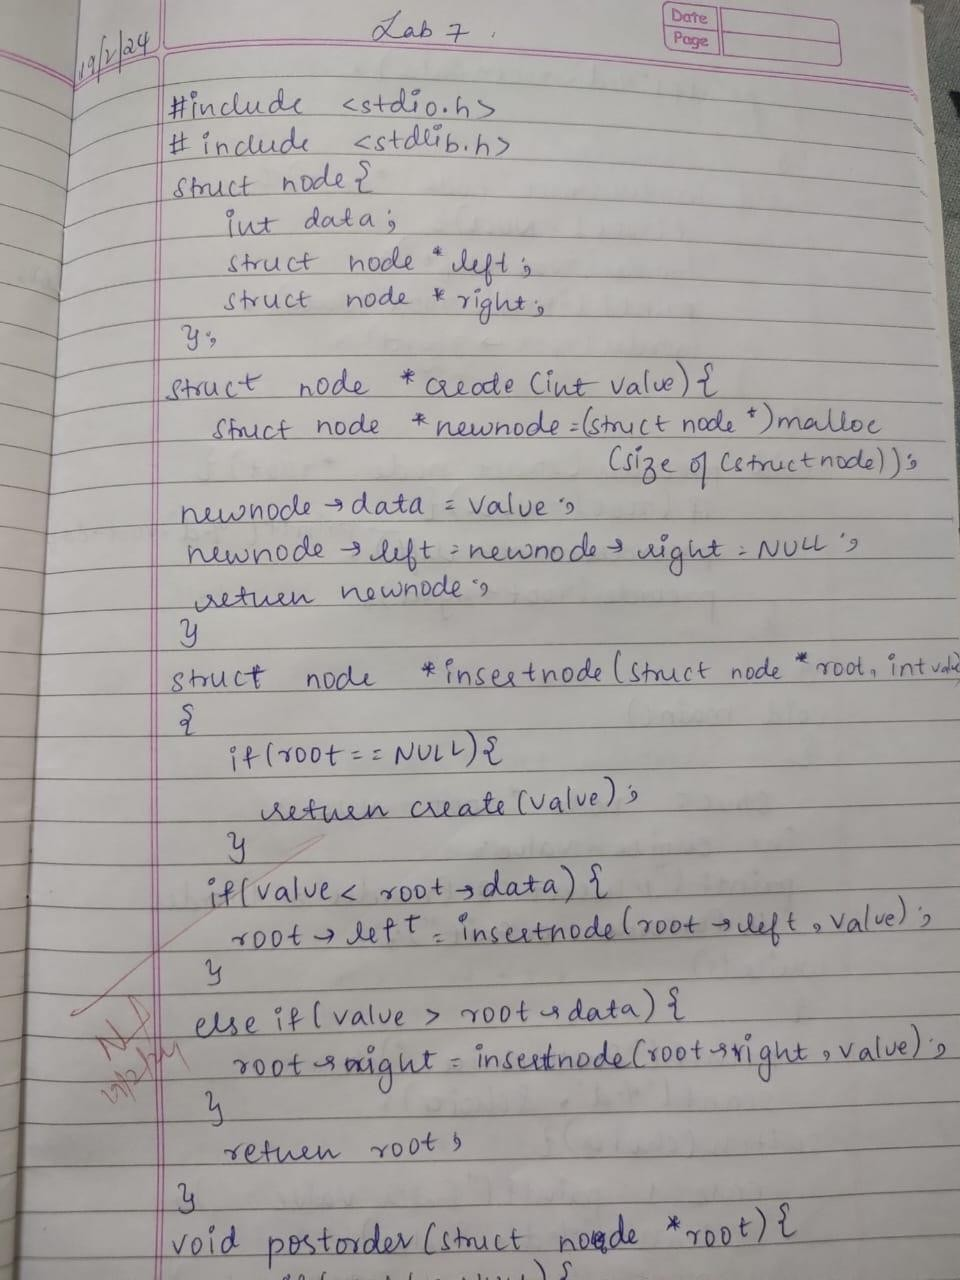 19/2/24
Lab 7.
Date
Page
#include <stdio.h>
# include <stdlib.h>
struct node {
int data;
struct node *left;
struct node * right;
};
struct node *create (int value) {
struct node *newnode = (struct node *) malloc
(size of (struct node));
newnode → data = value;
newnode → left = newnode → right = NULL;
return newnode;
}
struct node *insertnode (struct node *root, int value
{
if (root == NULL) {
return create (value);
}
if (value < root → data) {
root → left = insertnode (root → left, value);
}
else if (value > root → data) {
root → right = insertnode (root → right, value);
}
return root;
}
void postorder (struct node *root) {